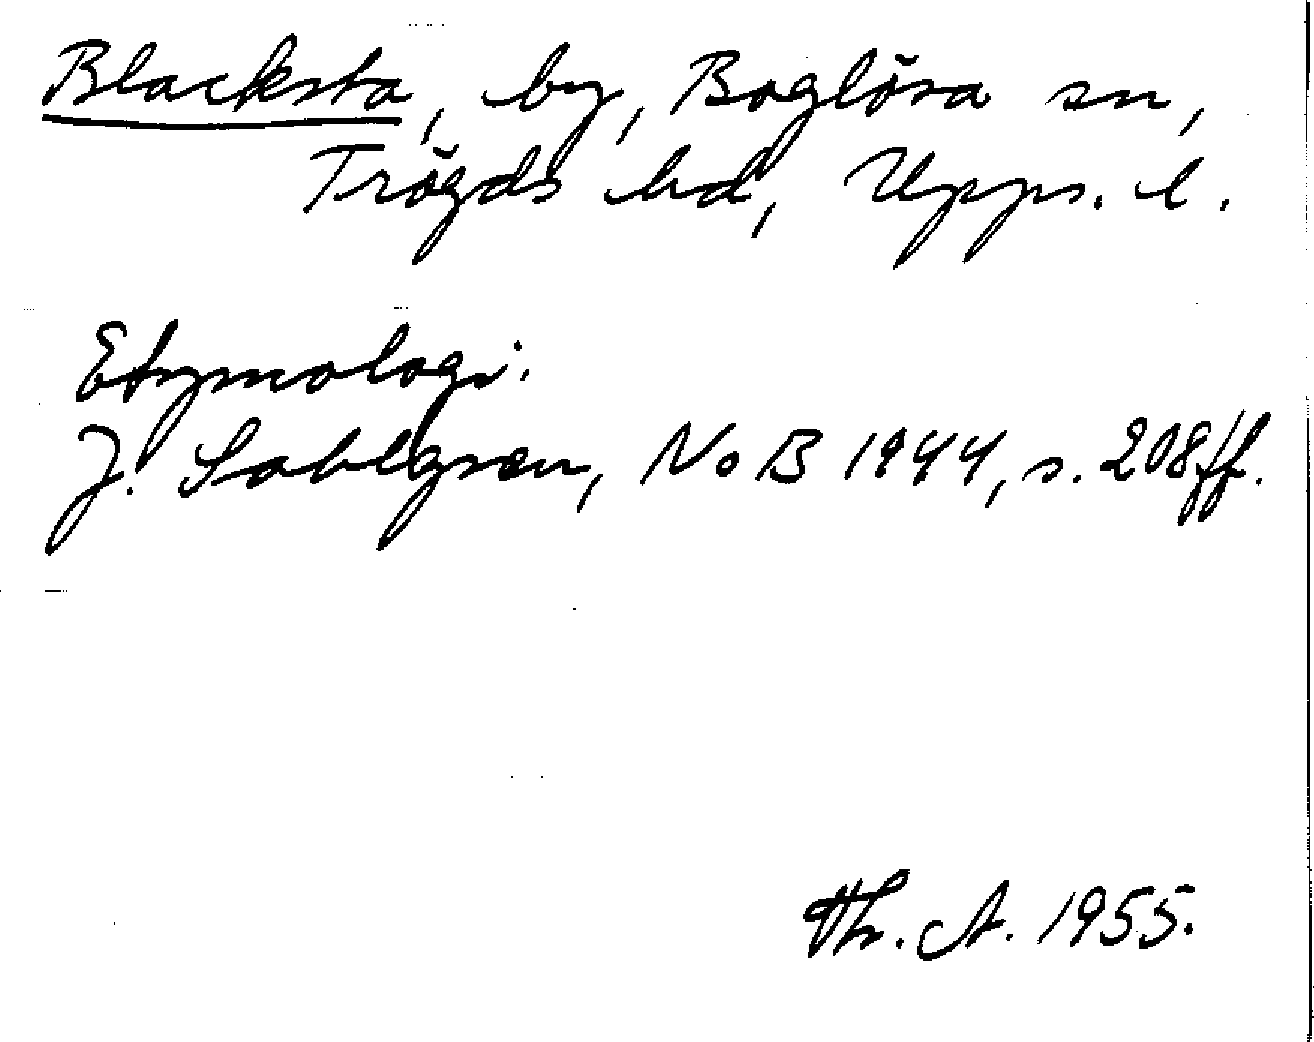 Blacksta, by, Boglösa sn,
Trögds hd, Upps. l.
Etymologi:
J. Sahlgren, NoB 1944, s. 208ff.
Th. A. 1955.